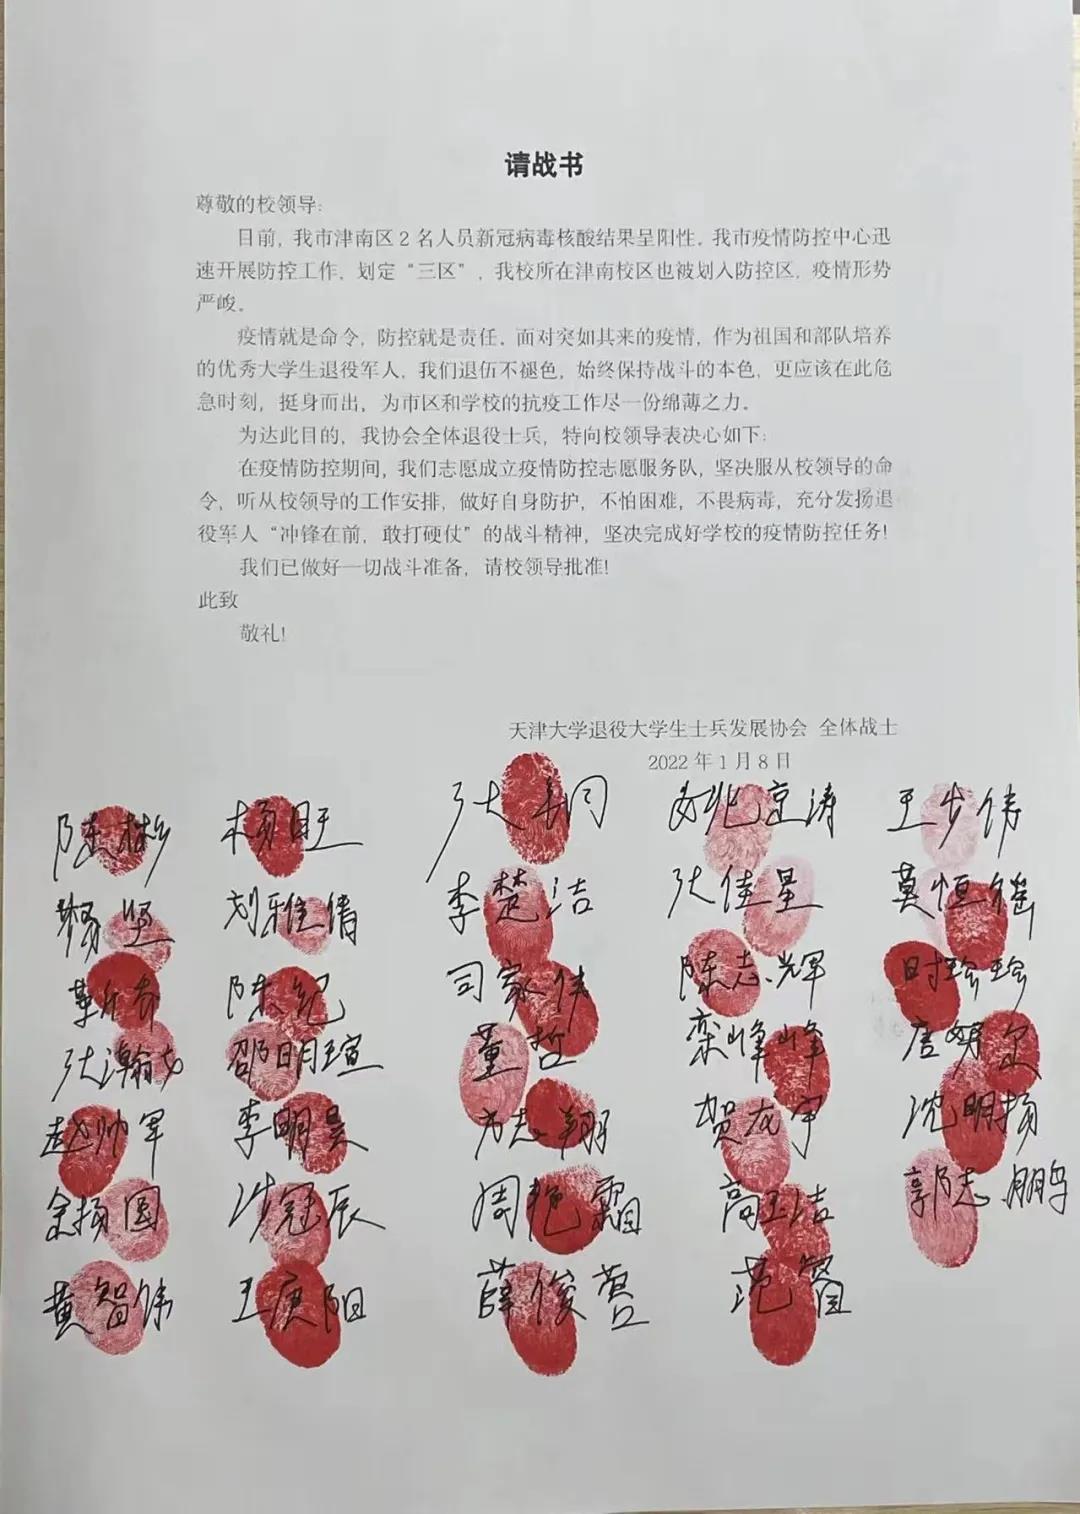 请战书
尊敬的校领导:
目前,我市津南区2名人员新冠病毒核酸结果呈阳性。我市疫情防控中心迅
速开展防控工作、划定“三区”,我校所在津南校区也被划入防控区,疫情形势
严峻。
疫情就是命令,防控就是责任。面对突如其来的疫情,作为祖国和部队培养
的优秀大学生退役军人,我们退伍不褪色,始终保持战斗的本色,更应该在此危
急时刻,挺身而出,为市区和学校的抗疫工作尽一份绵薄之力。
为达此目的,我协会全体退役士兵,特向校领导表决心如下:
在疫情防控期间,我们志愿成立疫情防控志愿服务队,坚决服从校领导的命
令,听从校领导的工作安排,做好自身防护,不怕困难,不畏病毒,充分发扬退
役军人“冲锋在前,敢打硬仗”的战斗精神,坚决完成好学校的疫情防控任务!
我们已做好一切战斗准备,请校领导批准!
此致
敬礼!
天津大学退役大学生士兵发展协会 全体战士
2022年1月8日
陈彬 杨旺 王步伟
杨坚 刘雅倩 李楚洁 张佳星 莫恒
陈纪 司家伟 陈志辉 时珍珍
张瀚 邵明瑄 董哲 栾峰峰 唐
赵帅军 李明昊 方志翔 贺龙宇 沈明扬
余扬圆 沙冠辰 周艳霜 高玉洁 郭志鹏
黄智伟 王庚阳 薛俊营 范